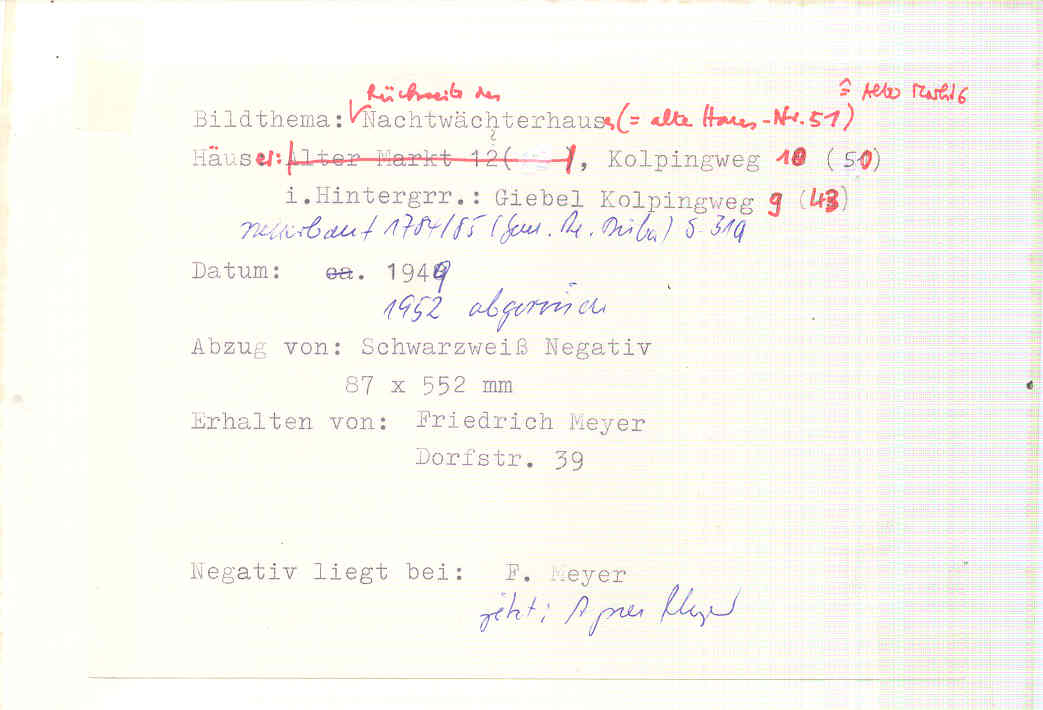 Rückseite des ≙ Alter Markt 6
Bildthema: Nachtwächterhauses (= alte Haus-Nr. 51)
Häuser: Alter Markt 12(, Kolpingweg 10 (50)
i.Hintergrr.: Giebel Kolpingweg 9 (43)
1784/85 S. 319
Datum: ca. 1949
1952 abgerissen
Abzug von: Schwarzweiß Negativ
87 x 552 mm
Erhalten von: Friedrich Meyer
Dorfstr. 39
Negativ liegt bei: F. Meyer
jetzt: Agnes Meyer